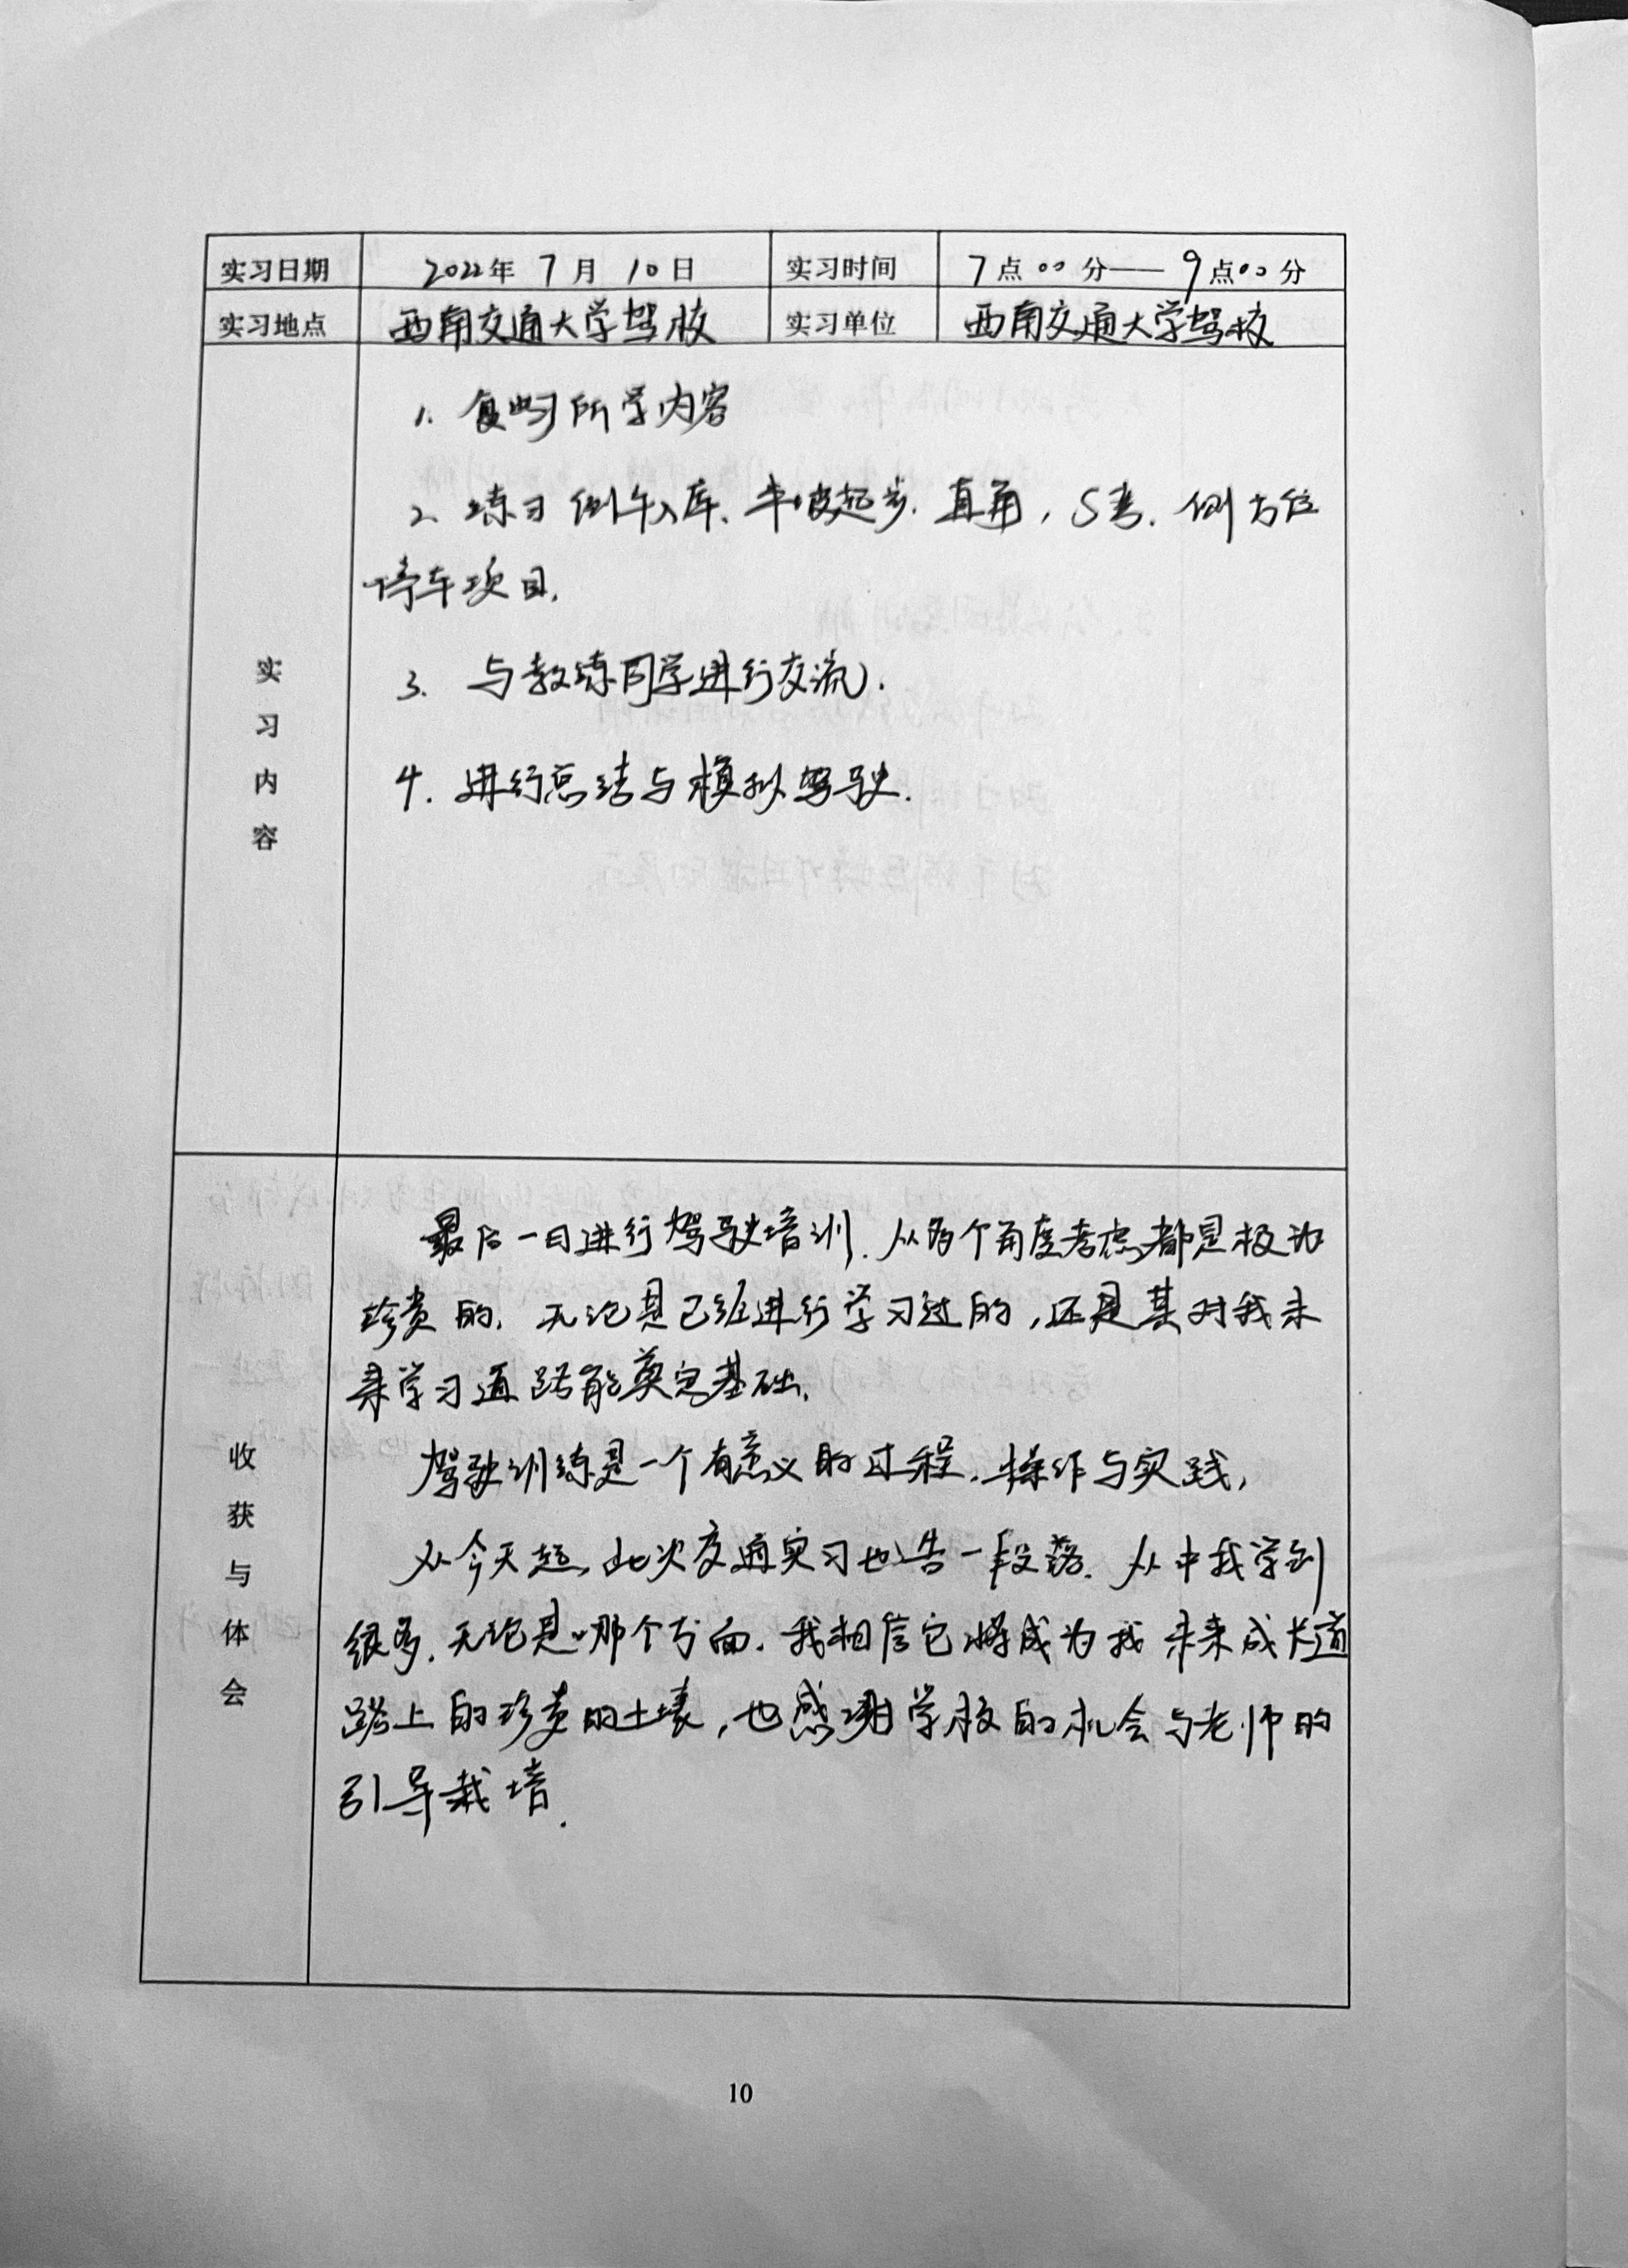 实习日期 2022年 7月 10日 实习时间 7点00分——9点00分
实习地点 西南交通大学驾校 实习单位 西南交通大学驾校
实习内容
1. 复习所学内容
2. 练习倒车入库、半坡起步. 直角, S弯. 侧方位
停车项目.
3. 与教练同学进行交流.
4. 进行总结与模拟驾驶.
收获与体会
最后一日进行驾驶培训. 从多个角度考虑都是极为
珍贵的, 无论是已经进行学习过的, 还是其对我未
来学习道路能奠定基础.
驾驶训练是一个有意义的过程. 操作与实践,
从今天起, 此次交通实习也告一段落. 从中我学到
很多. 无论是哪个方面. 我相信它将成为我未来成长道
路上的珍贵的土壤, 也感谢学校的机会与老师的
引导栽培.
10